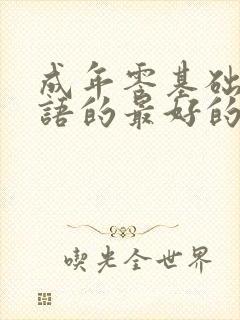 成年零基础
語的最好的
喫光全世界